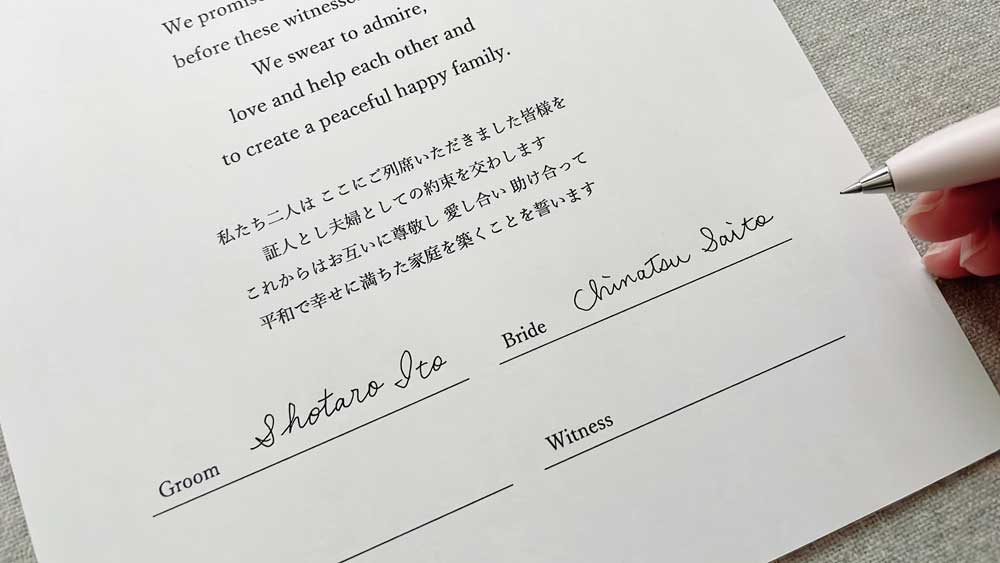 We promise
before these witnesses
We swear to admire,
love and help each other and
to create a peaceful happy family.
私たち二人は ここにご列席いただきました皆様を
証人とし夫婦としての約束を交わします
これからはお互いに尊敬し 愛し合い 助け合って
平和で幸せに満ちた家庭を築くことを誓います
Groom Shotaro Ito
Bride Chinatsu Saito
Witness